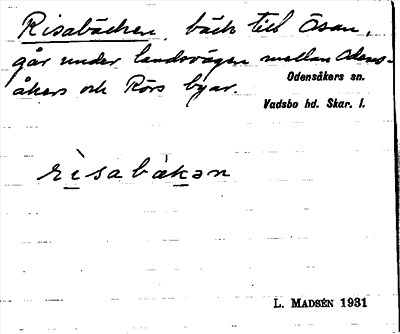 Risabäcken, bäck till Ösan,
går under landsvägen mellan Odens-
åkers och Rörs byar.
Odensåkers sn.
Vadsbo hd. Skar. l.
rìsabàkən
L. MADSÉN 1931